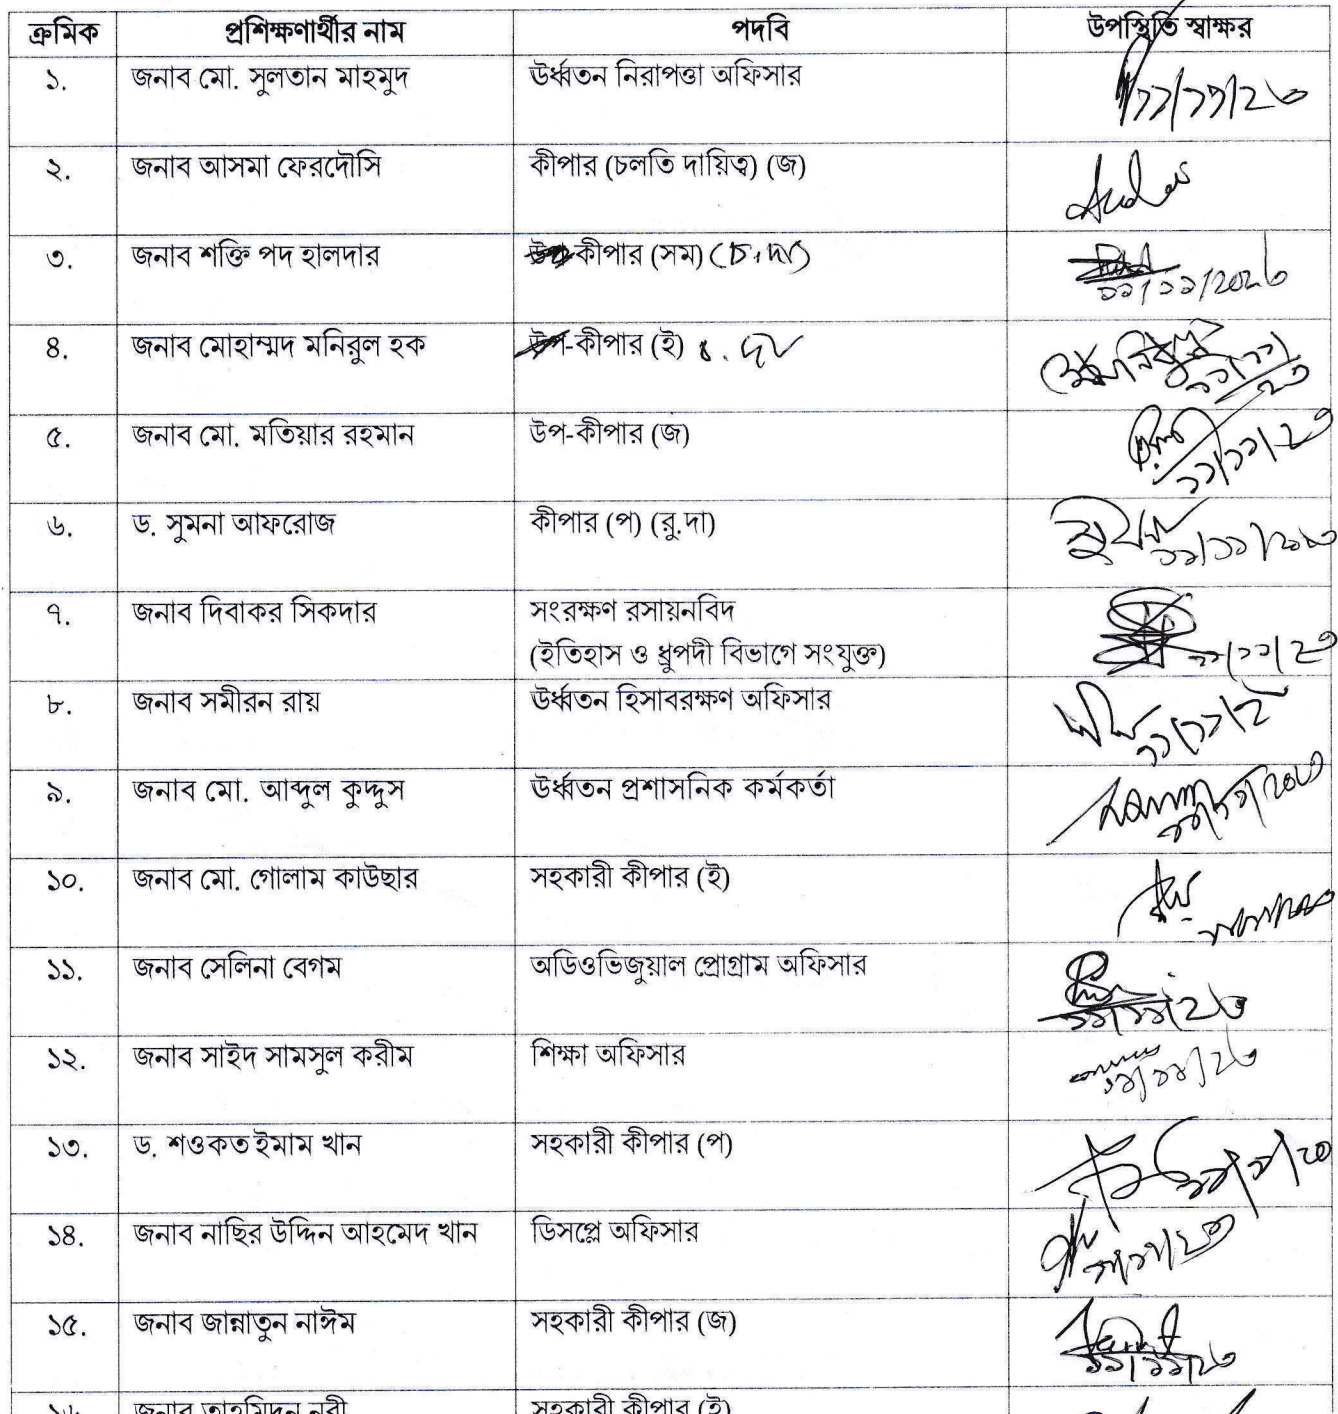 ক্রমিক প্রশিক্ষণার্থীর নাম পদবি উপস্থিতি স্বাক্ষর
১. জনাব মো. সুলতান মাহমুদ ঊর্ধ্বতন নিরাপত্তা অফিসার
২. জনাব আসমা ফেরদৌসি কীপার (চলতি দায়িত্ব) (জ)
৩. জনাব শক্তি পদ হালদার উপ-কীপার (সম) (চ.দা)
১১/১১/২০২৩
৪. জনাব মোহাম্মদ মনিরুল হক উপ-কীপার (ই) চ.দা
৫. জনাব মো. মতিয়ার রহমান উপ-কীপার (জ)
১১/১১/২৩
৬. ড. সুমনা আফরোজ কীপার (প) (রু.দা)
৭. জনাব দিবাকর সিকদার সংরক্ষণ রসায়নবিদ
(ইতিহাস ও ধ্রুপদী বিভাগে সংযুক্ত) ১১/১১/২৩
৮. জনাব সমীরন রায় ঊর্ধ্বতন হিসাবরক্ষণ অফিসার
৯. জনাব মো. আব্দুল কুদ্দুস ঊর্ধ্বতন প্রশাসনিক কর্মকর্তা
১০. জনাব মো. গোলাম কাউছার সহকারী কীপার (ই)
১১. জনাব সেলিনা বেগম অডিওভিজুয়াল প্রোগ্রাম অফিসার
১১/১১/২৩
১২. জনাব সাইদ সামসুল করীম শিক্ষা অফিসার
১১/১১/২৩
১৩. ড. শওকত ইমাম খান সহকারী কীপার (প)
১৪. জনাব নাছির উদ্দিন আহমেদ খান ডিসপ্লে অফিসার
১১/১১/২৩
১৫. জনাব জান্নাতুন নাঈম সহকারী কীপার (জ)
১১/১১/২৩
১৬. জনাব তাহমিদুন নবী সহকারী কীপার (ই)